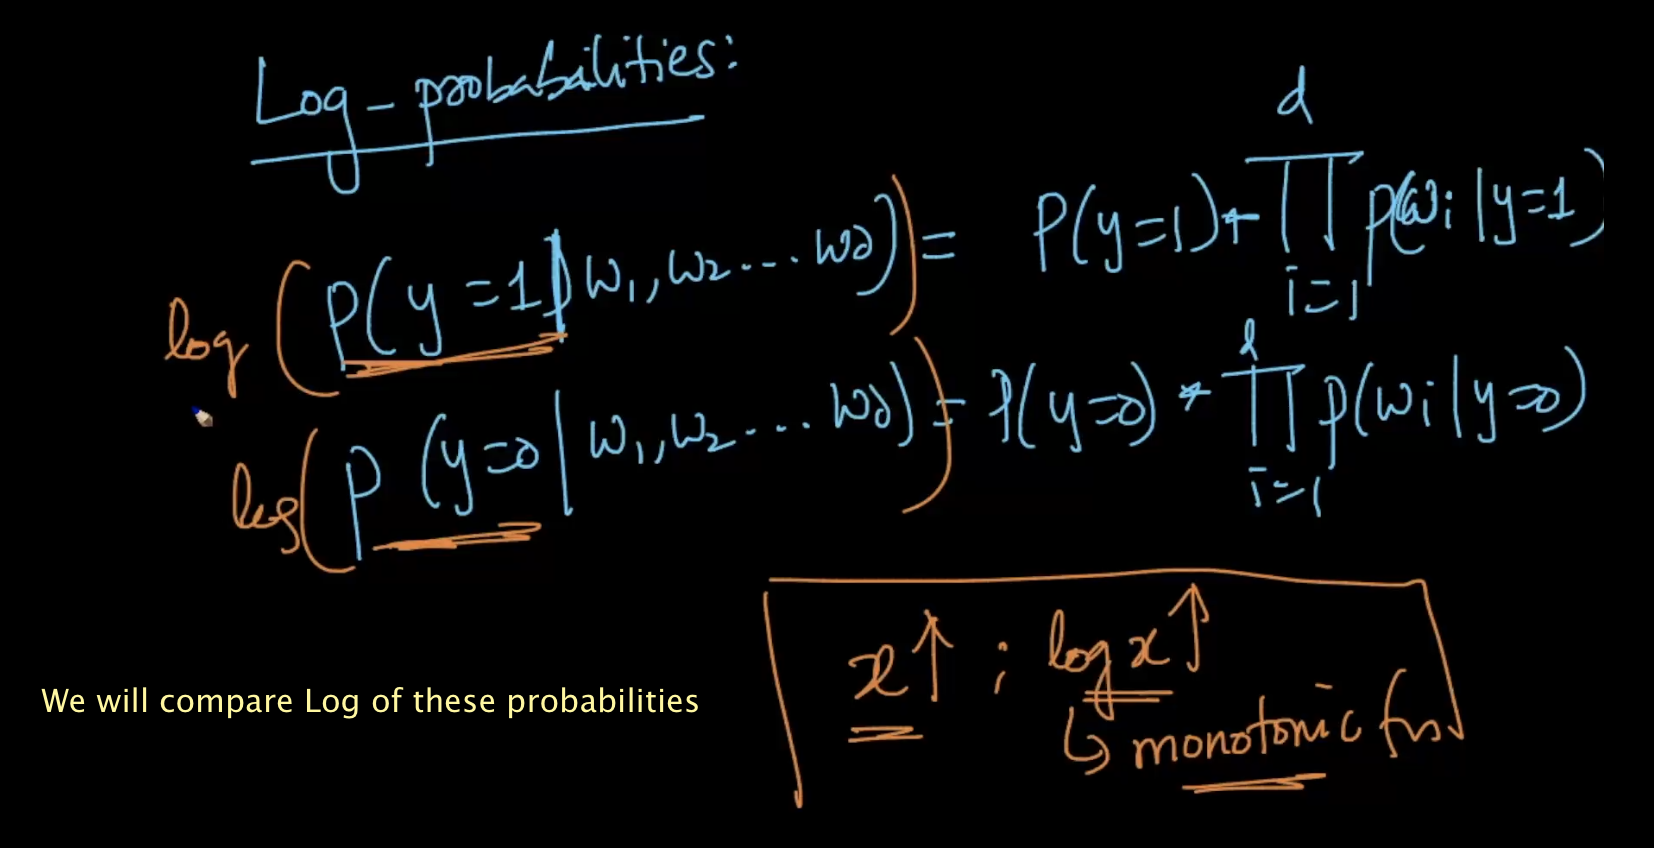 Log-probabilities:
log (P(y=1|w₁,w₂...wd)) = P(y=1) * ∏ᵢ₌₁ᵈ P(wᵢ|y=1)
log (P(y=0|w₁,w₂...wd)) = P(y=0) * ∏ᵢ₌₁ᵈ P(wᵢ|y=0)
x↑ ; log x↑
↳ monotonic fn
We will compare Log of these probabilities